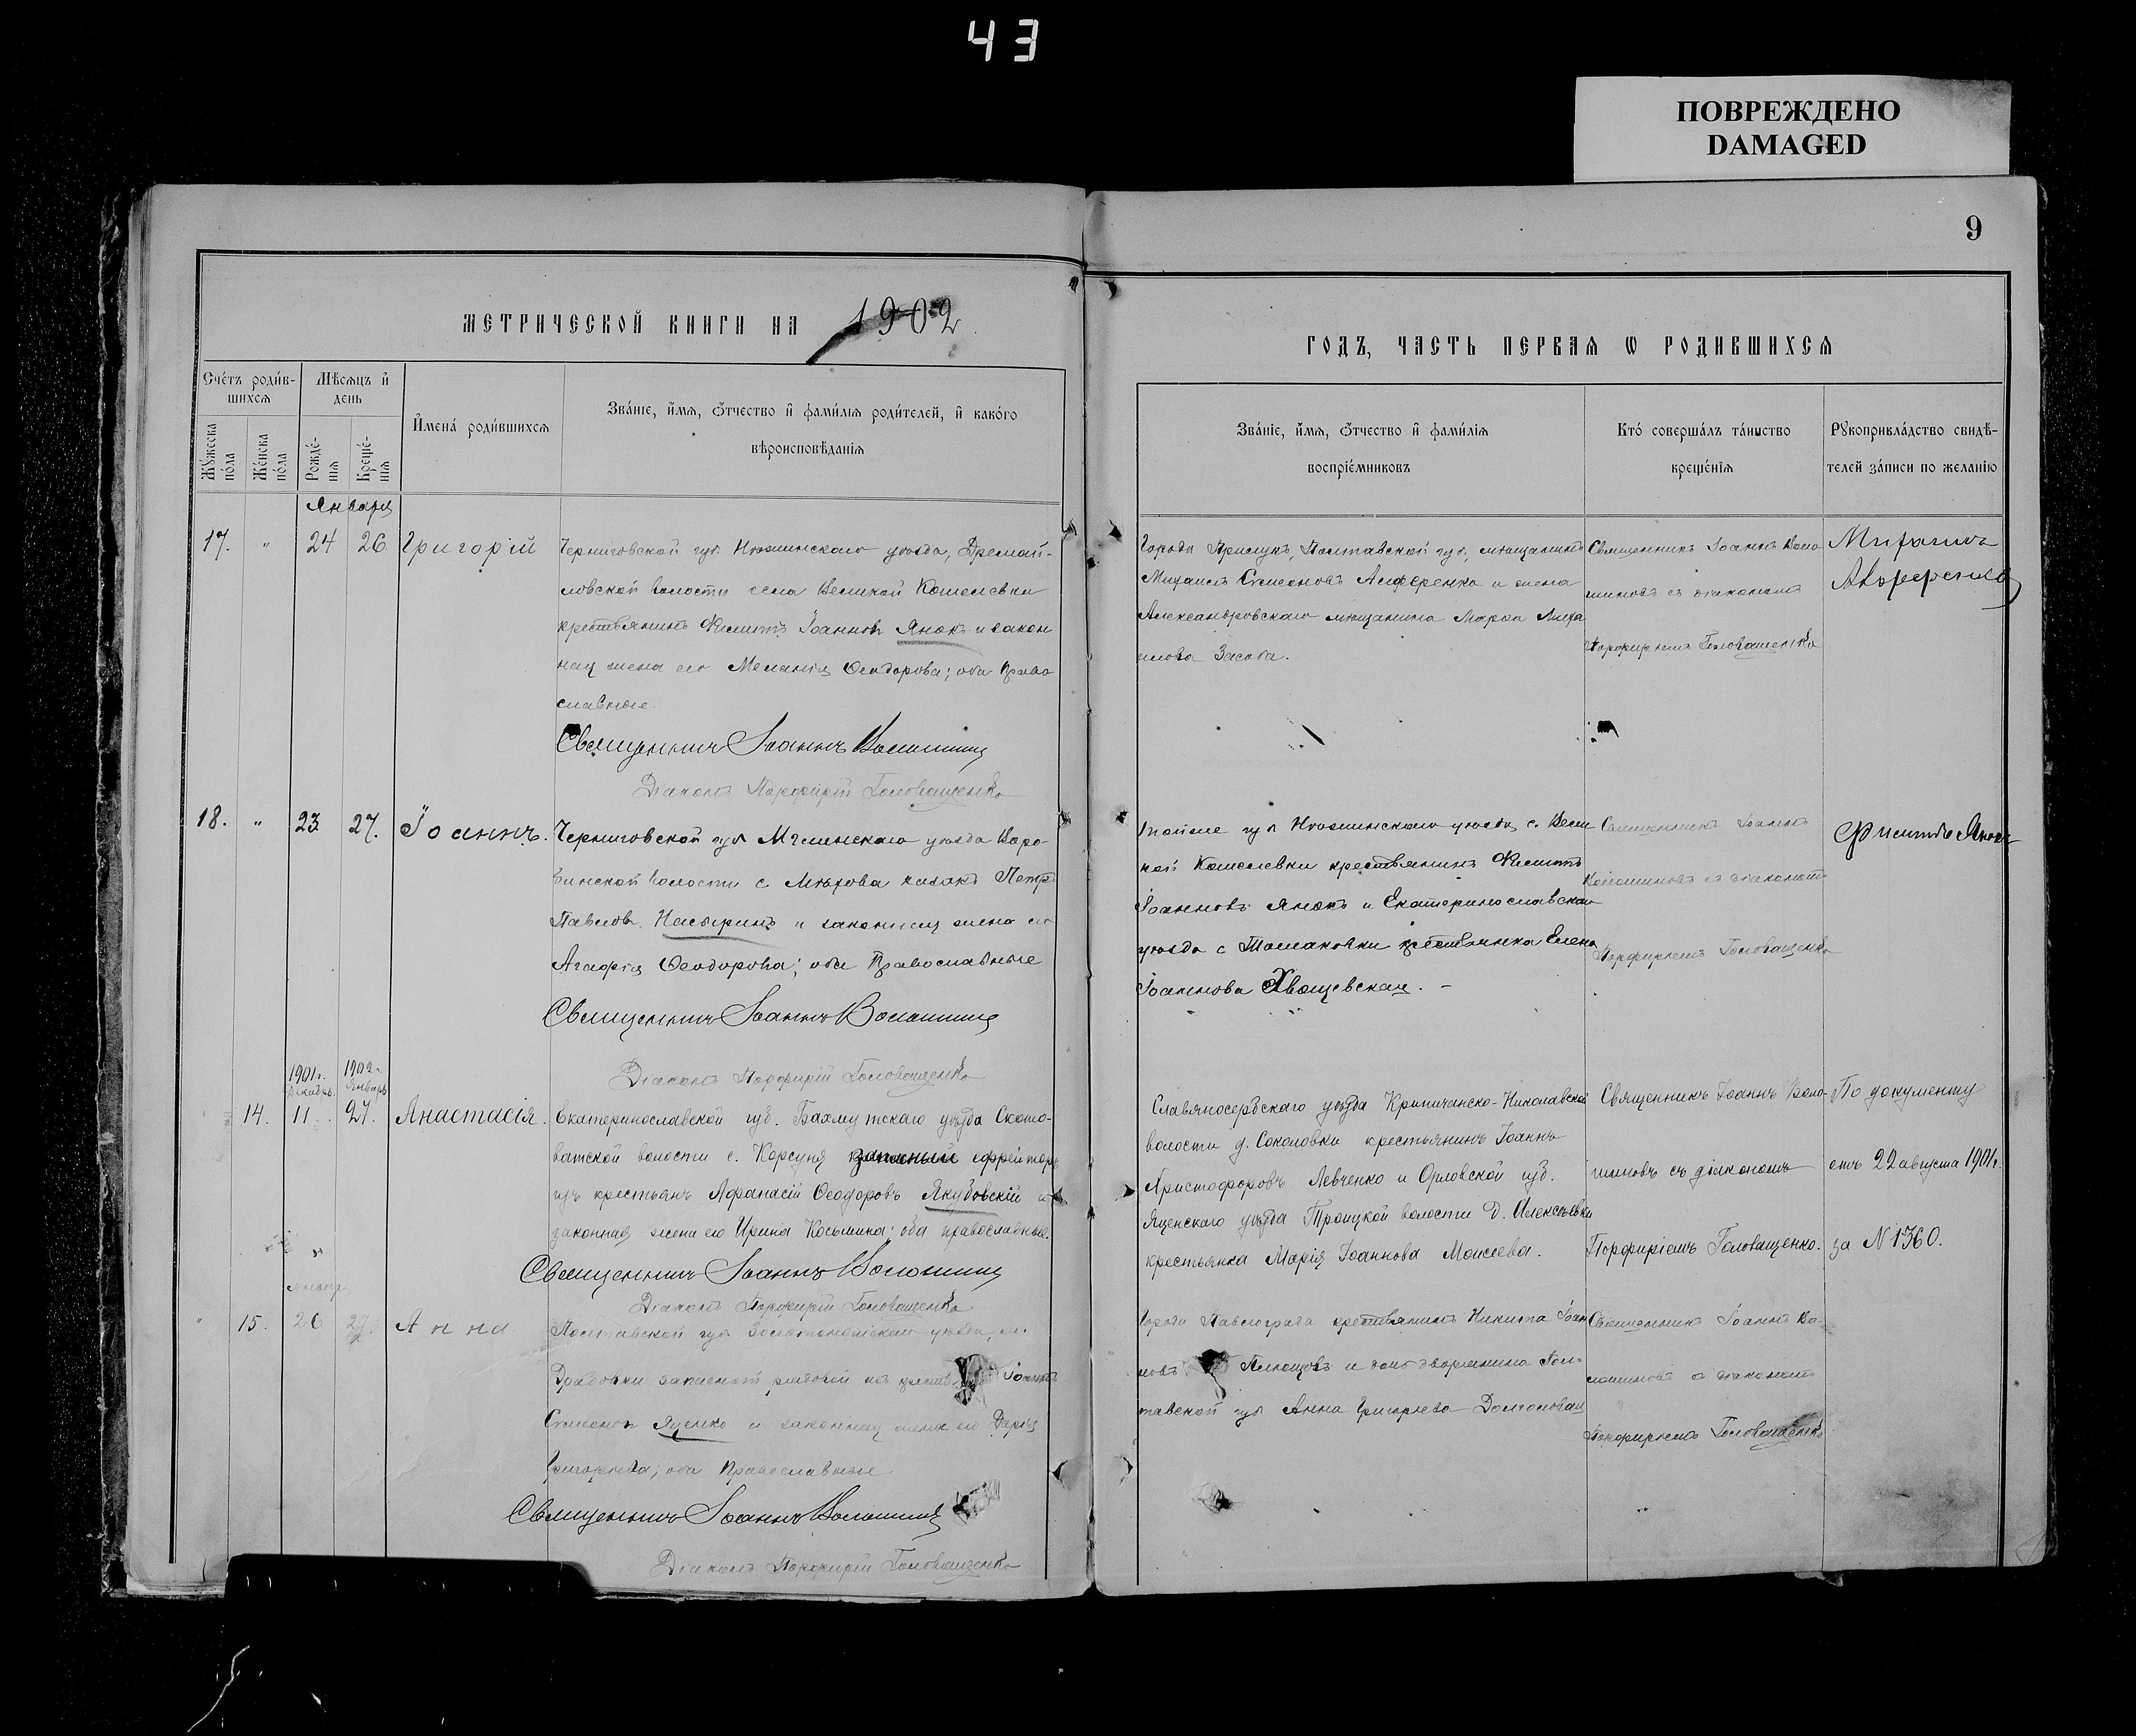 43
ПОВРЕЖДЕНО
DAMAGED
9
МЕТРИЧЕСКОЙ КНИГИ НА 1902
ГОДЪ, ЧАСТЬ ПЕРВАЯ Ѡ РОДИВШИХСЯ
Счетъ родив-
шихся
Мѣсяцъ и
день
Мужеска
пола
Женска
пола
Рожде-
нія
Креще-
нія
Имена родившихся
Званіе, имя, отчество и фамилія родителей, и какого
вѣроисповѣданія
Званіе, имя, отчество и фамилія
воспріемниковъ
Кто совершалъ таинство
крещенія
Рукоприкладство свидѣ-
телей записи по желанію
Января
17. " 24 26 Григорій
Черниговской губ. Нѣжинскаго уѣзда, Дремай-
ловской волости села Великой Кошелевки
крестьянинъ Филиппъ Іоанновъ Янокъ и закон
ная жена его Меланія Ѳеодорова; оба право
славные
Священникъ Іоаннъ Волошинъ
Діаконъ Порфирій Головащенко
Города Прилукъ, Полтавской губ, мѣщанинъ
Михаилъ Симеоновъ и жена
Александровскаго мѣщанина Марѳа
Священникъ Іоаннъ Воло
шиновъ съ діакономъ
Порфиріемъ Головащенко
18. " 23 27. Іоаннъ.
Черниговской губ Мглинскаго уѣзда
волости с. казакъ Петръ
Павловъ и законная жена его
Агафія Ѳеодорова; оба Православные
Священникъ Іоаннъ Волошинъ
Діаконъ Порфирій Головащенко
губ Нѣжинскаго уѣзда с. Вели
кой Кошелевки крестьянинъ Филиппъ
Іоанновъ Янокъ и Екатеринославскаго
уѣзда с Томаковки крестьянка Елена
Іоаннова Хвощевская. -
Священникъ Іоаннъ
Волошиновъ съ діакономъ
Порфиріемъ Головащенко
Филиппъ Янокъ
1901г. 1902г.
Декабрь. Январь
14. 11. 27. Анастасія.
Екатеринославской губ. Бахмутскаго уѣзда Ското-
ватской волости с. Корсуня запасный ефрейторъ
изъ крестьянъ Афанасій Ѳеодоровъ Якубовскій и
законная жена его Ирина Косьмина; оба православные.
Священникъ Іоаннъ Волошинъ
Діаконъ Порфирій Головащенко
Славяносербскаго уѣзда Крипичанско-Николаевской
волости д. Соколовки крестьянинъ Іоаннъ
Христофоровъ Левченко и Орловской губ.
уѣзда Троицкой волости д. Алексѣевки
крестьянка Марія Іоаннова Моисеева.
Священникъ Іоаннъ Воло-
шиновъ съ діакономъ
Порфиріемъ Головащенко.
По документу
отъ 22 августа 1901г.
за № 1360.
" 15. 26 27. Анна
Полтавской губ Золотоношскаго уѣзда, м.
Драбовки запасной рядовой изъ Іоаннъ
Симеоновъ Яценко и законная жена его Дарія
Григорьева; оба Православные
Священникъ Іоаннъ Волошинъ
Діаконъ Порфирій Головащенко
Города Павлограда крестьянинъ Никита Іоан
новъ и дочь дворянина Пол-
тавской губ Анна Григорьева
Священникъ Іоаннъ Во-
лошиновъ съ діакономъ
Порфиріемъ Головащенко